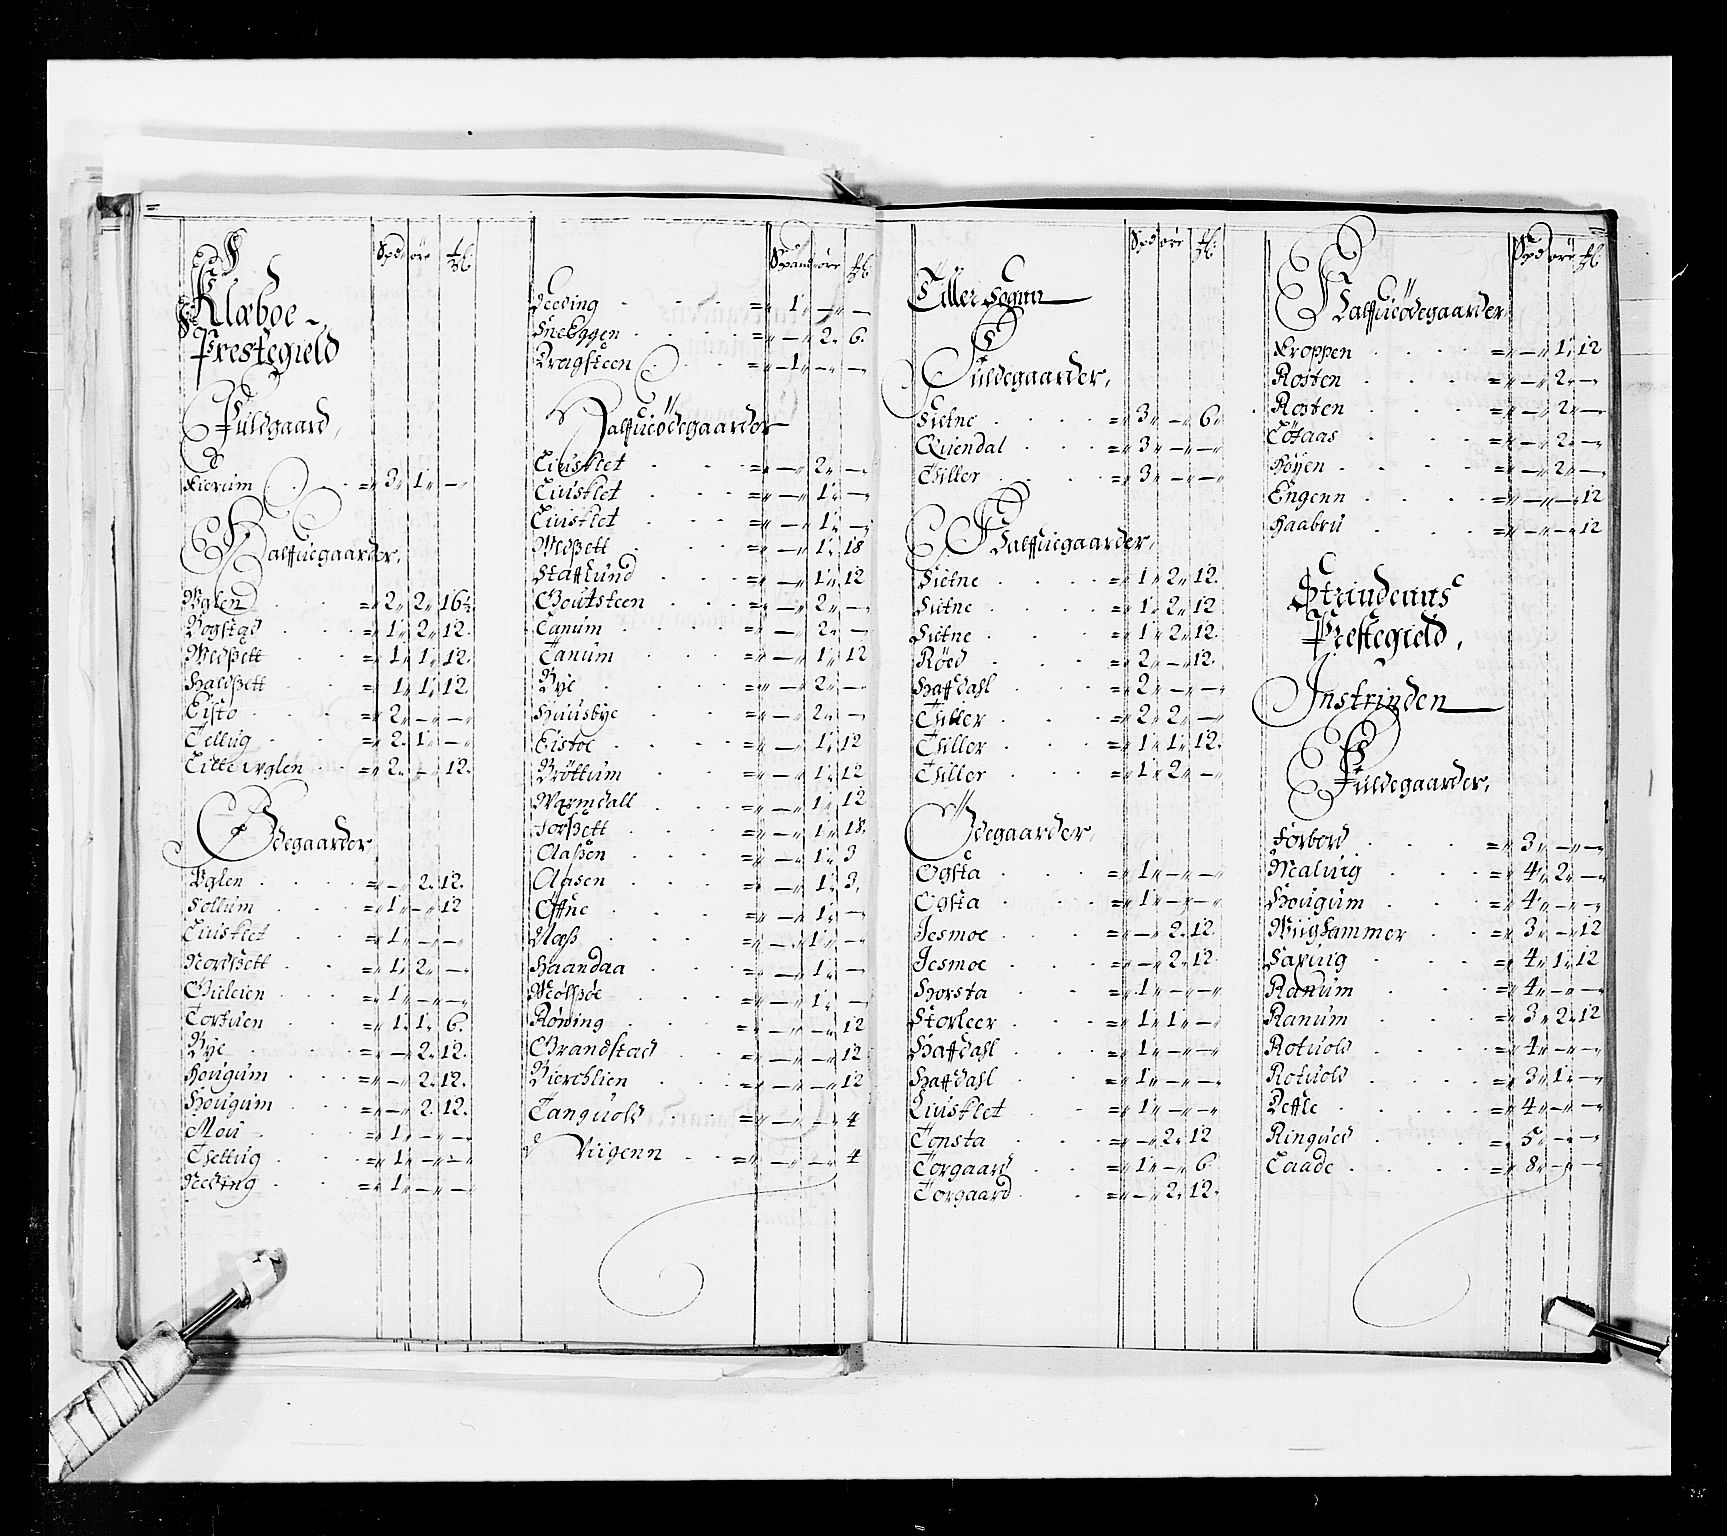 Spd øre ℔
Klæboe
Prestegield
Fuldgaard,
Kierum = 3 „ 1 „ —
Halffuegaarder,
Uglen = 2 „ 2 „ 16½
Bogstad = 1 „ 2 „ 12
Wedßett = 1 „ 1 „ 12
Haldßett = 1 „ 1 „ 12
Eisto = 2 „ — „ —
Tellug = 2 „ 1 „ —
Litle Uglen = 2 „ — „ 12
Ødegaarder
Uglen = — „ 2 „ 12
Sollum = 1 „ — „ 12
Luisklet = 1 „ — „ —
Nordßett = 1 „ 2 „ —
Gieleien = 1 „ — „ —
Torhuen = 1 „ 1 „ 6
Bye = — „ 2 „ 12
Hougum = — „ 2 „ 12
Hougum = — „ 2 „ 12
Mou = 1 „ — „ —
Thellug = 1 „ — „ —
Neding = 1 „ — „ —
Spand øre ℔
Neding = 1 „ — „ —
Sneeggen = — „ 2 „ 6
Dragsteen = 1 „ — „ —
Halffueødegaarder
Luisklet = — „ 2 „ —
Luisklet = — „ 1 „ —
Luisklet = — „ 1 „ —
Wedßett = — „ 1 „ 18
Stafflund = — „ 1 „ 12
Goutsteen = — „ 2 „ —
Tanum = — „ 2 „ —
Tanum = — „ 1 „ 12
Bye = — „ 2 „ —
Huusbye = — „ 2 „ —
Eistoe = — „ 1 „ 12
Brøttum = — „ 1 „ 12
Warmdall = — „ 1 „ 12
Forßett = — „ 1 „ 18
Olaßen = — „ 1 „ 3
Olasen = — „ 1 „ 3
Øffne = — „ 1 „ —
Næß = — „ 1 „ —
Haandaa = — „ 1 „ —
— „ 1 „ —
Røwing = — „ — „ 12
Grandstad = — „ — „ 12
Bierchlien = — „ — „ 12
Tanguold = — „ — „ 4
Viigenn = — „ — „ 4
Spd øre ℔
Tiller Sognn
Fuldegaarder,
Sietne = 3 „ — „ 6
Quendal = 3 „ — „ —
Thiller = 3 „ — „ —
Halffuegaarder,
Sietne = 1 „ 2 „ 12
Sietne = 1 „ 2 „ 12
Sietne = 1 „ 2 „ 12
Røed = 2 „ — „ 12
Haffdahl = 2 „ — „ —
Thiller = 2 „ 2 „ —
Thiller = 1 „ 1 „ 12
Thiller = 1 „ 2 „ —
Ødegaarder,
Ogsta = 1 „ — „ —
Ogsta = 1 „ — „ —
Jesmoe = — „ 2 „ 12
Jesmoe = — „ 2 „ 12
Horsta = 1 „ — „ —
Storleer = 1 „ 1 „ —
Haffdahl = 1 „ — „ —
Haffdahl = 1 „ — „ —
Luisklet = 1 „ — „ —
Tonsta = — „ 2 „ 12
Torgaard = 1 „ — „ 6
Torgaard = — „ 2 „ 12
Spd øre ℔
Halffueødegaarder
Kroppen = — „ 1 „ 12
Rosten = — „ 2 „ —
Rosten = — „ 2 „ —
Løfaas = — „ 2 „ —
Høyen = — „ 2 „ —
Engenn = — „ — „ 12
Haabru = — „ — „ 12
Strindenns
Prestegield,
Instrinden
Fuldegaarder,
Forbord = 3 „ — „ —
Maluig = 4 „ 2 „ —
Hougum = 4 „ — „ —
Wiighammer = 3 „ — „ 12
Saxuig = 4 „ 1 „ 12
Ranum = 4 „ — „ —
Ranum = 3 „ 2 „ 12
Rotuold = 4 „ — „ —
Rotuold = 3 „ 1 „ —
Leffle = 4 „ — „ —
Ringued = 5 „ — „ —
Laade = 8 „ — „ —